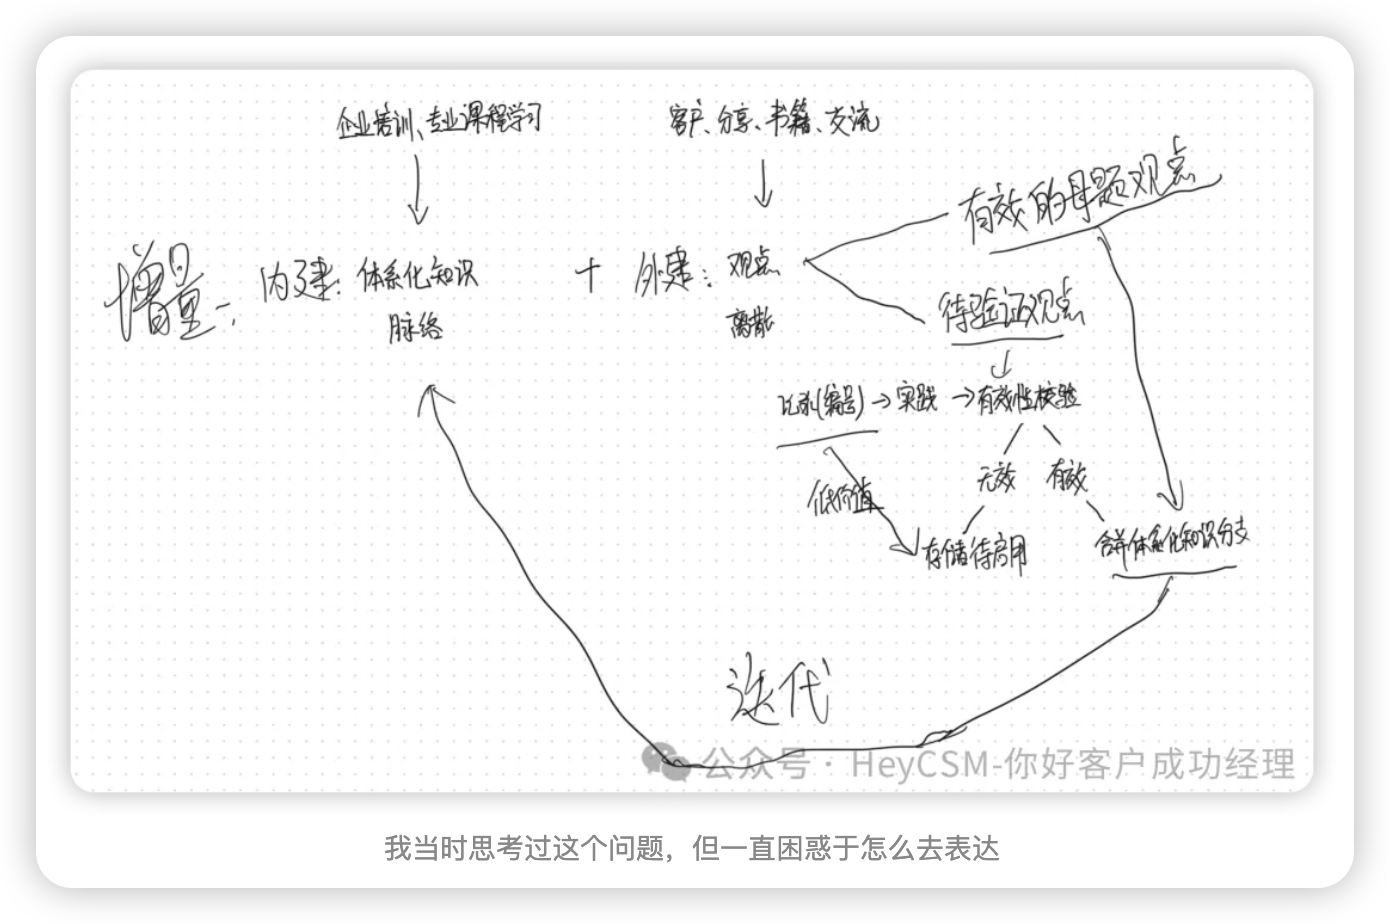 企业培训、专业课程学习
客户、分享、书籍、交流
有效的母题观点
增量:
内建:体系化知识
脉络
+
外建:观点
离散
待验证观点
记录(编号)→实践→有效性校验
低价值
无效
有效
存储待启用
合并体系化知识分支
迭代
公众号·HeyCSM-你好客户成功经理
我当时思考过这个问题，但一直困惑于怎么去表达